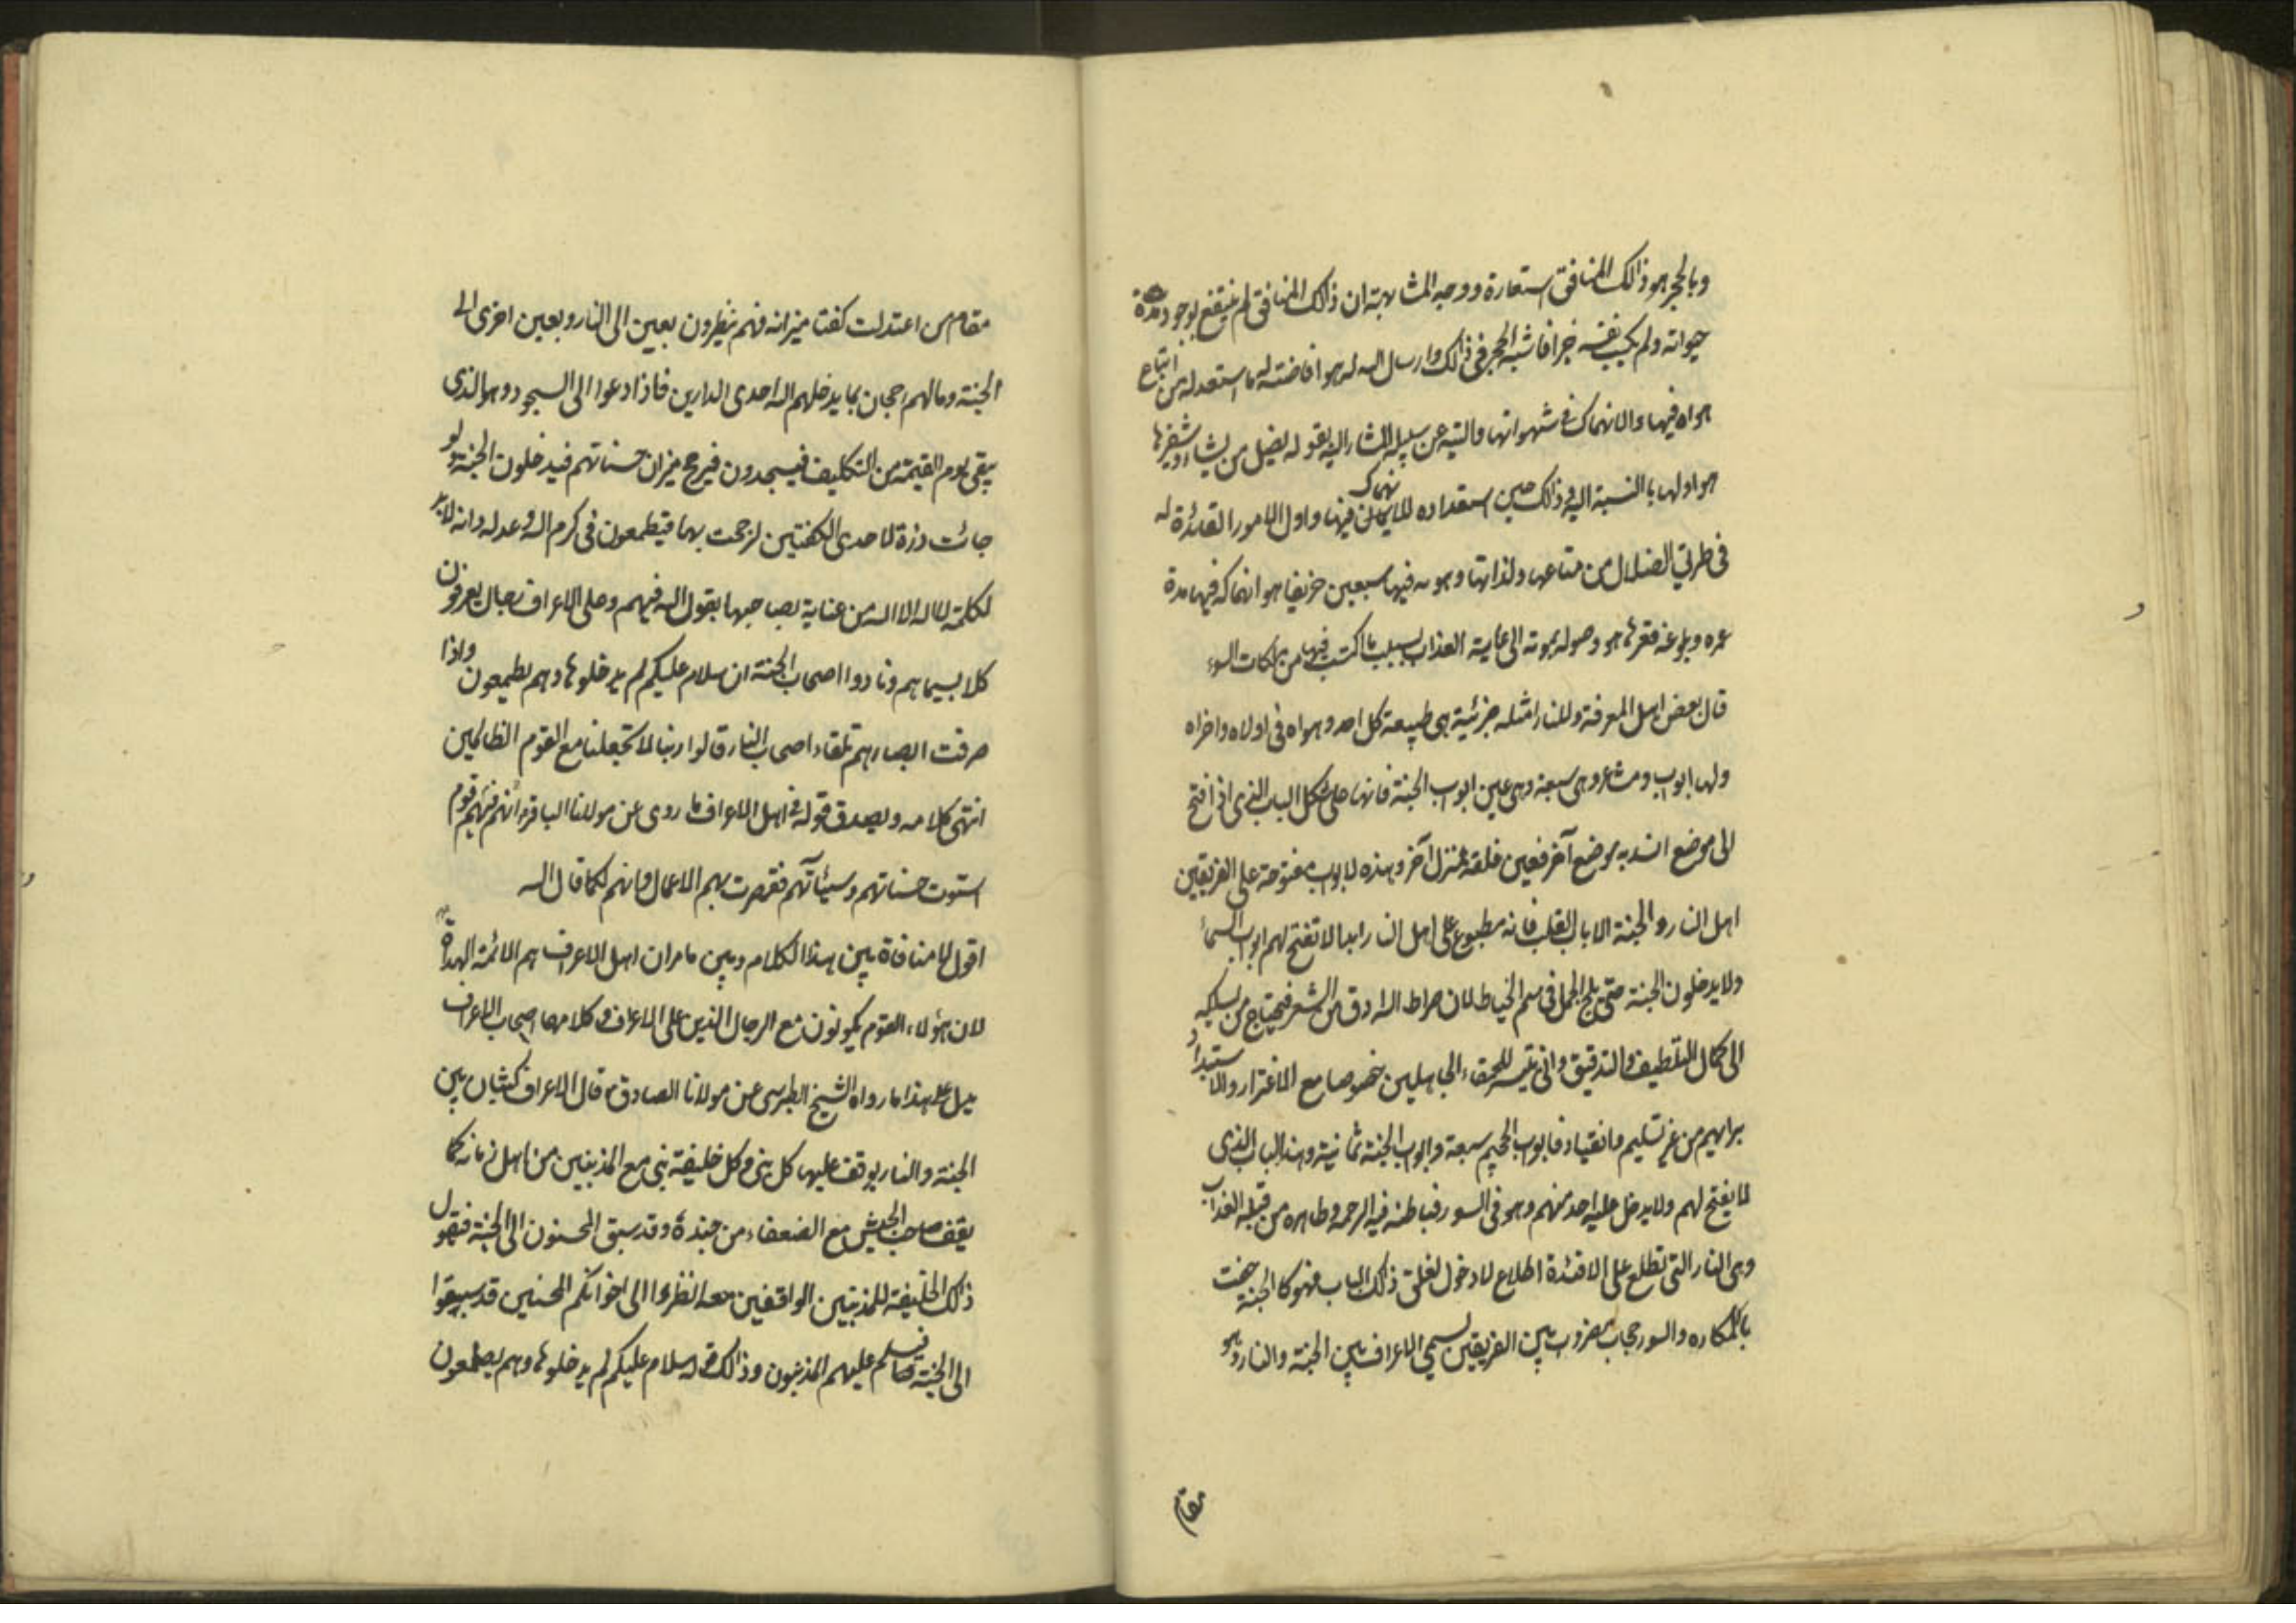 وبالحجر هو ذالك المنافق استعارة ووجه المشابهة ان ذالك المنافق لم ينتفع بوجوده مدة
حيوته ولم يكسب نفسه خيرا فاشبه الحجر في ذالك وارسال الله له هو افاضته له ما استعد له من اتباع
هواه فيها والانهماك في شهواتها والتيه عن سبيله المشار اليه بقوله يضل من يشاء وشفيرها
هو اولها بالنسبة اليه وذالك حين استعداده للانهماك فيها واول الامور القائدة له
في طريق الضلال من متاعها ولذاتها وهويه فيها سبعين خريفا هو انهماكه فيها مدة
عمره وبلوغه قعرها هو وصوله بموته الى غاية العذاب بسبب ما اكتسب فيها من ملكات السوء
قال بعض اهل المعرفة وللنار امثلة جزئية هي طبيعة كل احد وهواه في اولاه واخراه
ولها ابواب ومشاعر وهي سبعة وهي عين ابواب الجنة فانها على شكل الباب الذي اذا فتح
الى موضع انسد به موضع آخر فعين غلقه لمنزل آخر وهذه لابواب مفتوحة على الفريقين
اهل النار والجنة الا باب القلب فانه مطبوع على اهل النار ابدا لا تفتح لهم ابواب السماء
ولا يدخلون الجنة حتى يلج الجمل في سم الخياط لان صراط الله ادق من الشعر فيحتاج من يسلكه
الى كمال التلطيف والتدقيق وانى يتيسر للحمقاء الجاهلين خصوصا مع الاغترار والاستبداد
برايهم من غير تسليم وانقياد فابواب الجحيم سبعة وابواب الجنة ثمانية وهذا الباب الذي
لا يفتح لهم ولا يدخل عليه احد منهم وهو في السور فباطنه فيه الرحمة وظاهره من قبله العذاب
وهي النار التي تطلع على الافئدة اطلاع لا دخول لغلق ذالك الباب فهو كالجنة حفت
بالمكاره والسور حجاب مضروب بين الفريقين يسمى الاعراف بين الجنة والنار وهو
مقام
مقام من اعتدلت كفتا ميزانه فهم ينظرون بعين الى النار وبعين اخرى الى
الجنة وما لهم رجحان بما يدخلهم الله احدى الدارين فاذا دعوا الى السجود وهو الذي
يبقى يوم القيمة من التكليف فيسجدون فيرجح ميزان حسناتهم فيدخلون الجنة ولو
جائت ذرة لاحدى الكفتين لرجحت بها فيطمعون في كرم الله وعدله وانه لابد
لكلمة لا اله الا الله من عناية بصاحبها يقول الله فيهم وعلى الاعراف رجال يعرفون
كلا بسيماهم ونادوا اصحاب الجنة ان سلام عليكم لم يدخلوها وهم يطمعون واذا
صرفت ابصارهم تلقاء اصحاب النار قالوا ربنا لا تجعلنا مع القوم الظالمين
انتهى كلامه ويصدق قوله في اهل الاعراف ما روى عن مولانا الباقر ع انهم قوم
استوت حسناتهم وسيئاتهم فقصرت بهم الاعمال وانهم لكما قال الله
اقول لا منافاة بين هذا الكلام وبين ما مر ان اهل الاعراف هم الائمة الهداة
لان هؤلاء القوم يكونون مع الرجال الذين على الاعراف وكلاهما اصحاب الاعراف
يدل على هذا ما رواه الشيخ الطبرسي عن مولانا الصادق ع قال الاعراف كثبان بين
الجنة والنار يوقف عليها كل نبي وكل خليفة نبي مع المذنبين من اهل زمانه كما
يقف صاحب الجيش مع الضعفاء من جنده وقد سبق المحسنون الى الجنة فيقول
ذالك الخليفة للمذنبين الواقفين معه انظروا الى اخوانكم المحسنين قد سبقوا
الى الجنة فيسلم عليهم المذنبون وذالك قوله سلام عليكم لم يدخلوها وهم يطمعون